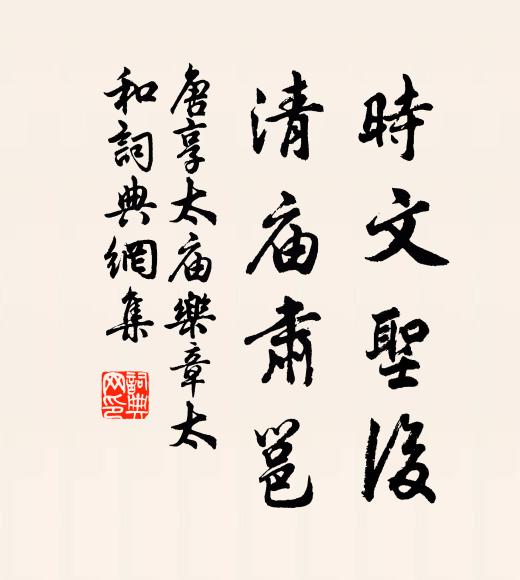 時文聖後
清庙肅邕
唐享太庙樂章太
和詞典網集
詞典网印